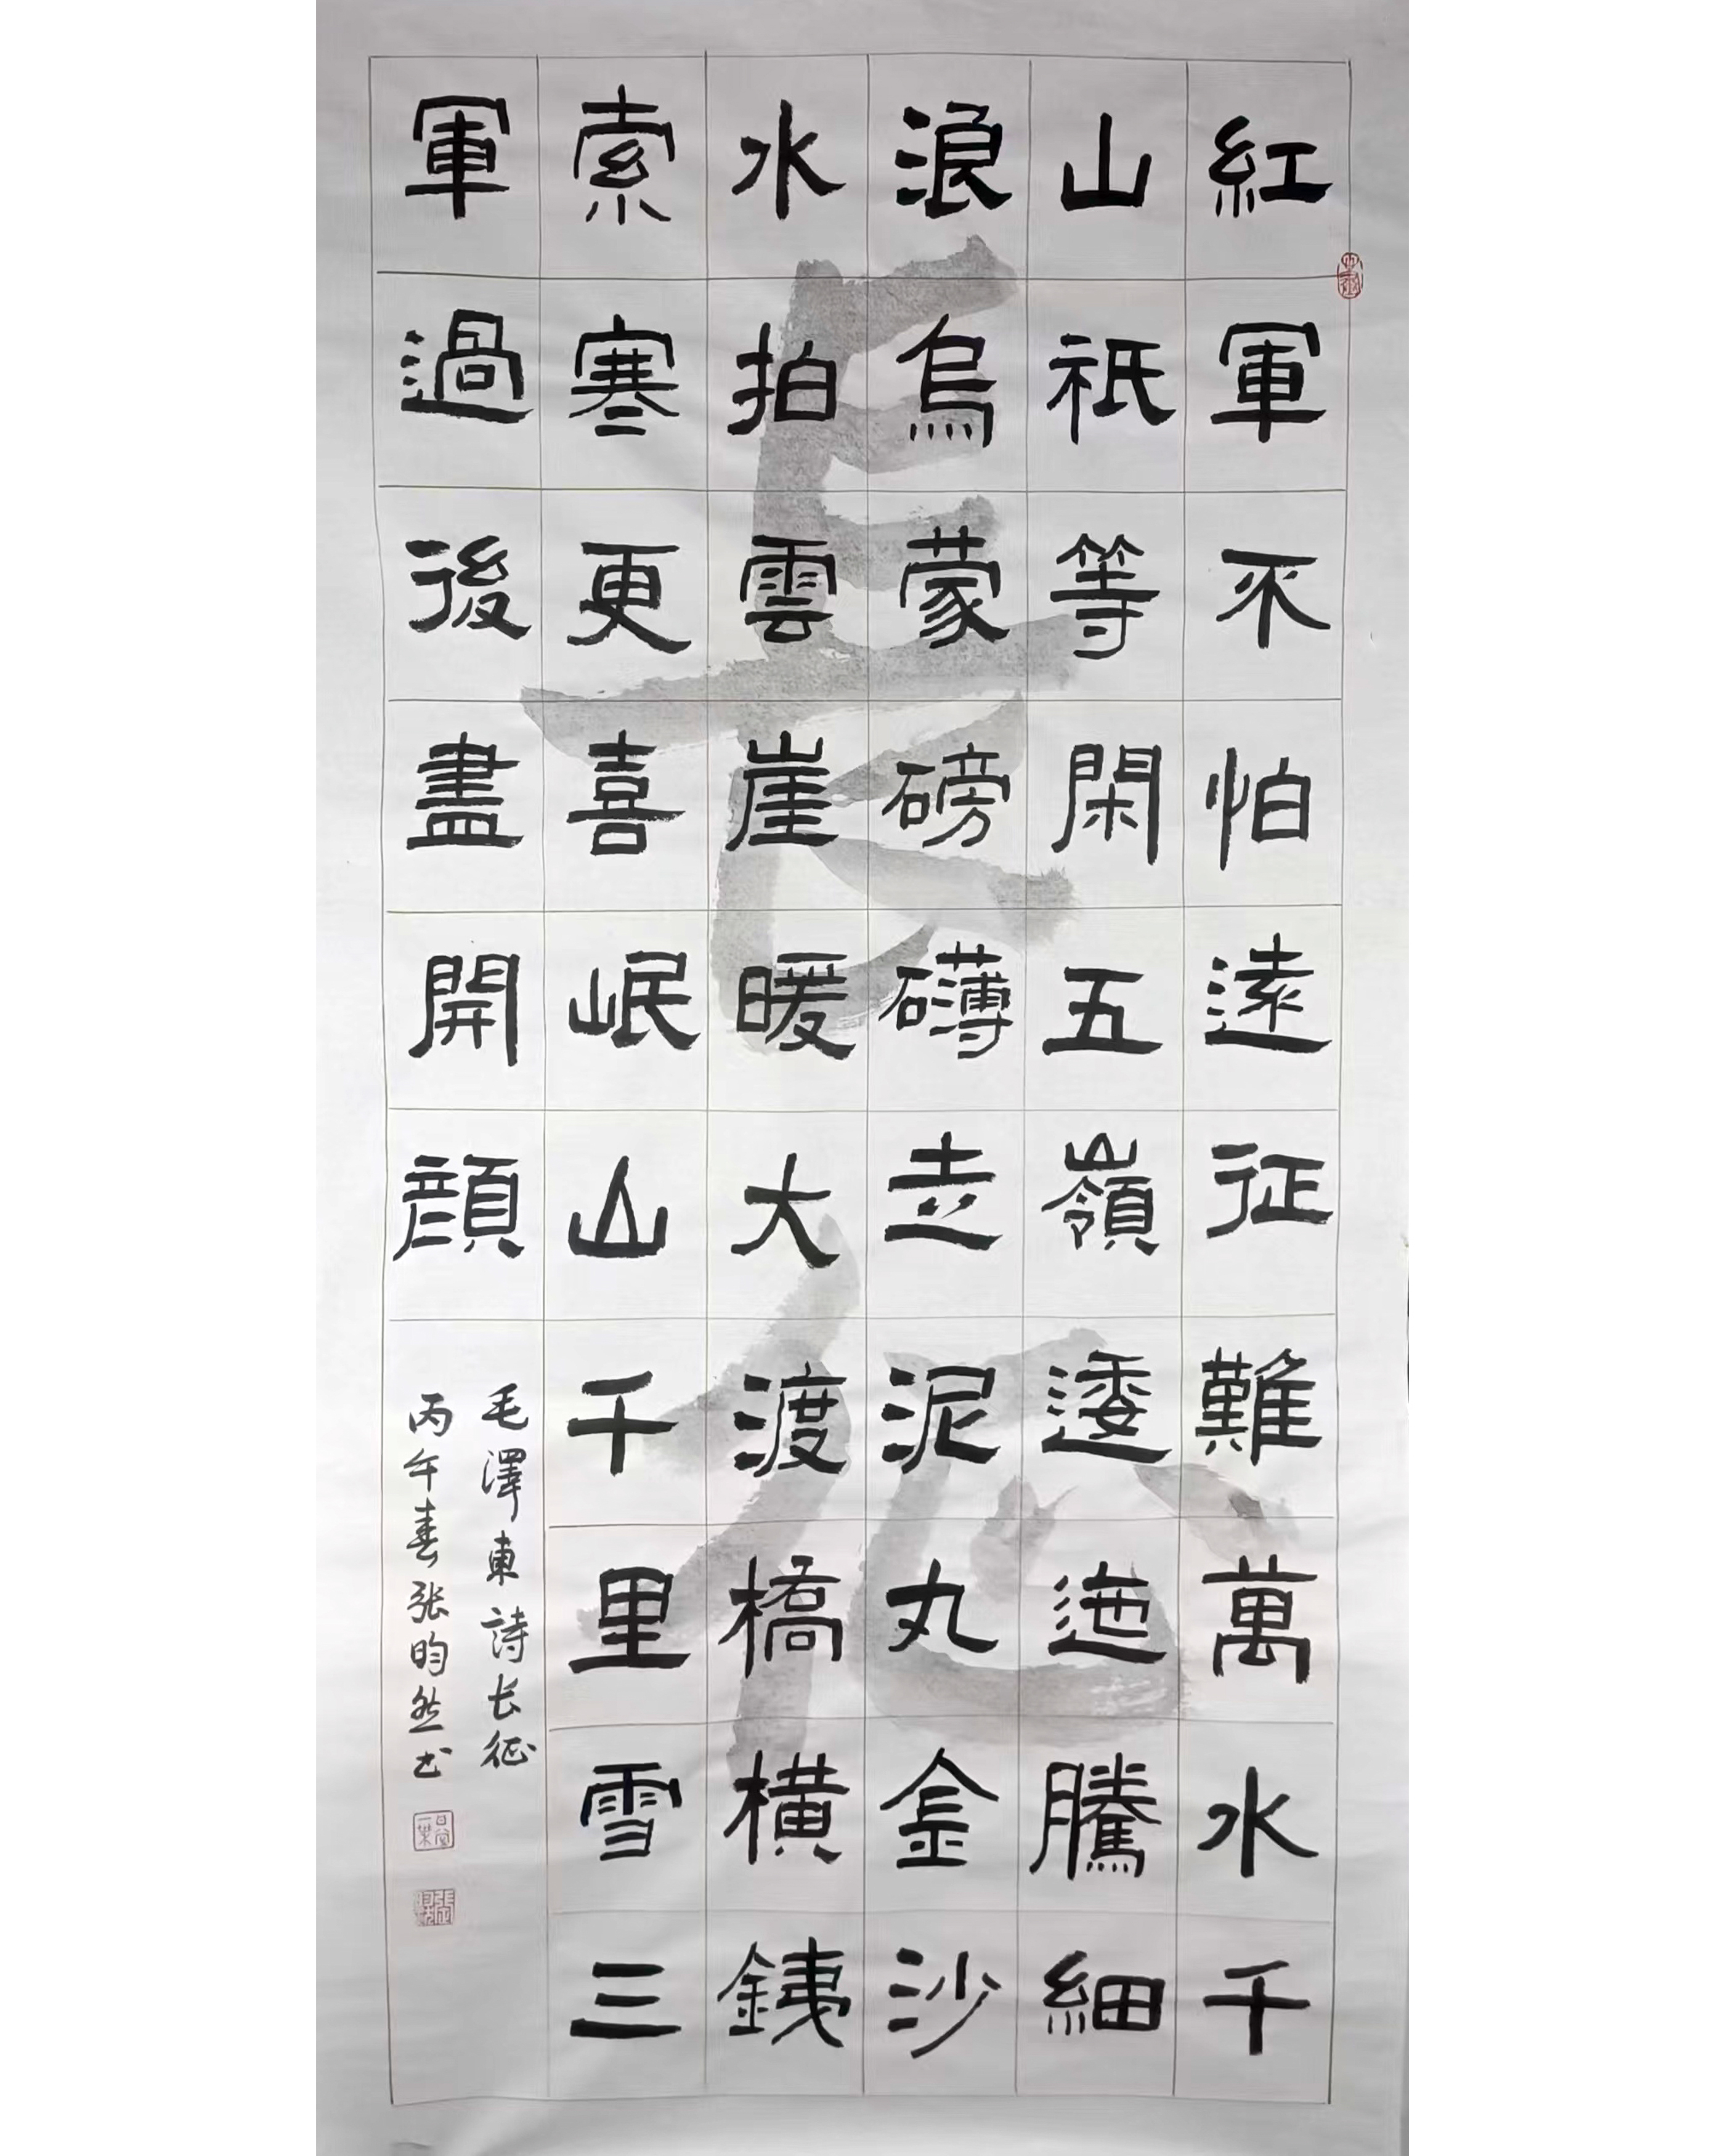 紅軍不怕遠征難萬水千
山祇等閑五嶺逶迤騰細
浪烏蒙磅礴走泥丸金沙
水拍雲崖暖大渡橋橫銕
索寒更喜岷山千里雪三
軍過後盡開顏
毛澤東詩长征
丙午春张昀然书
長征